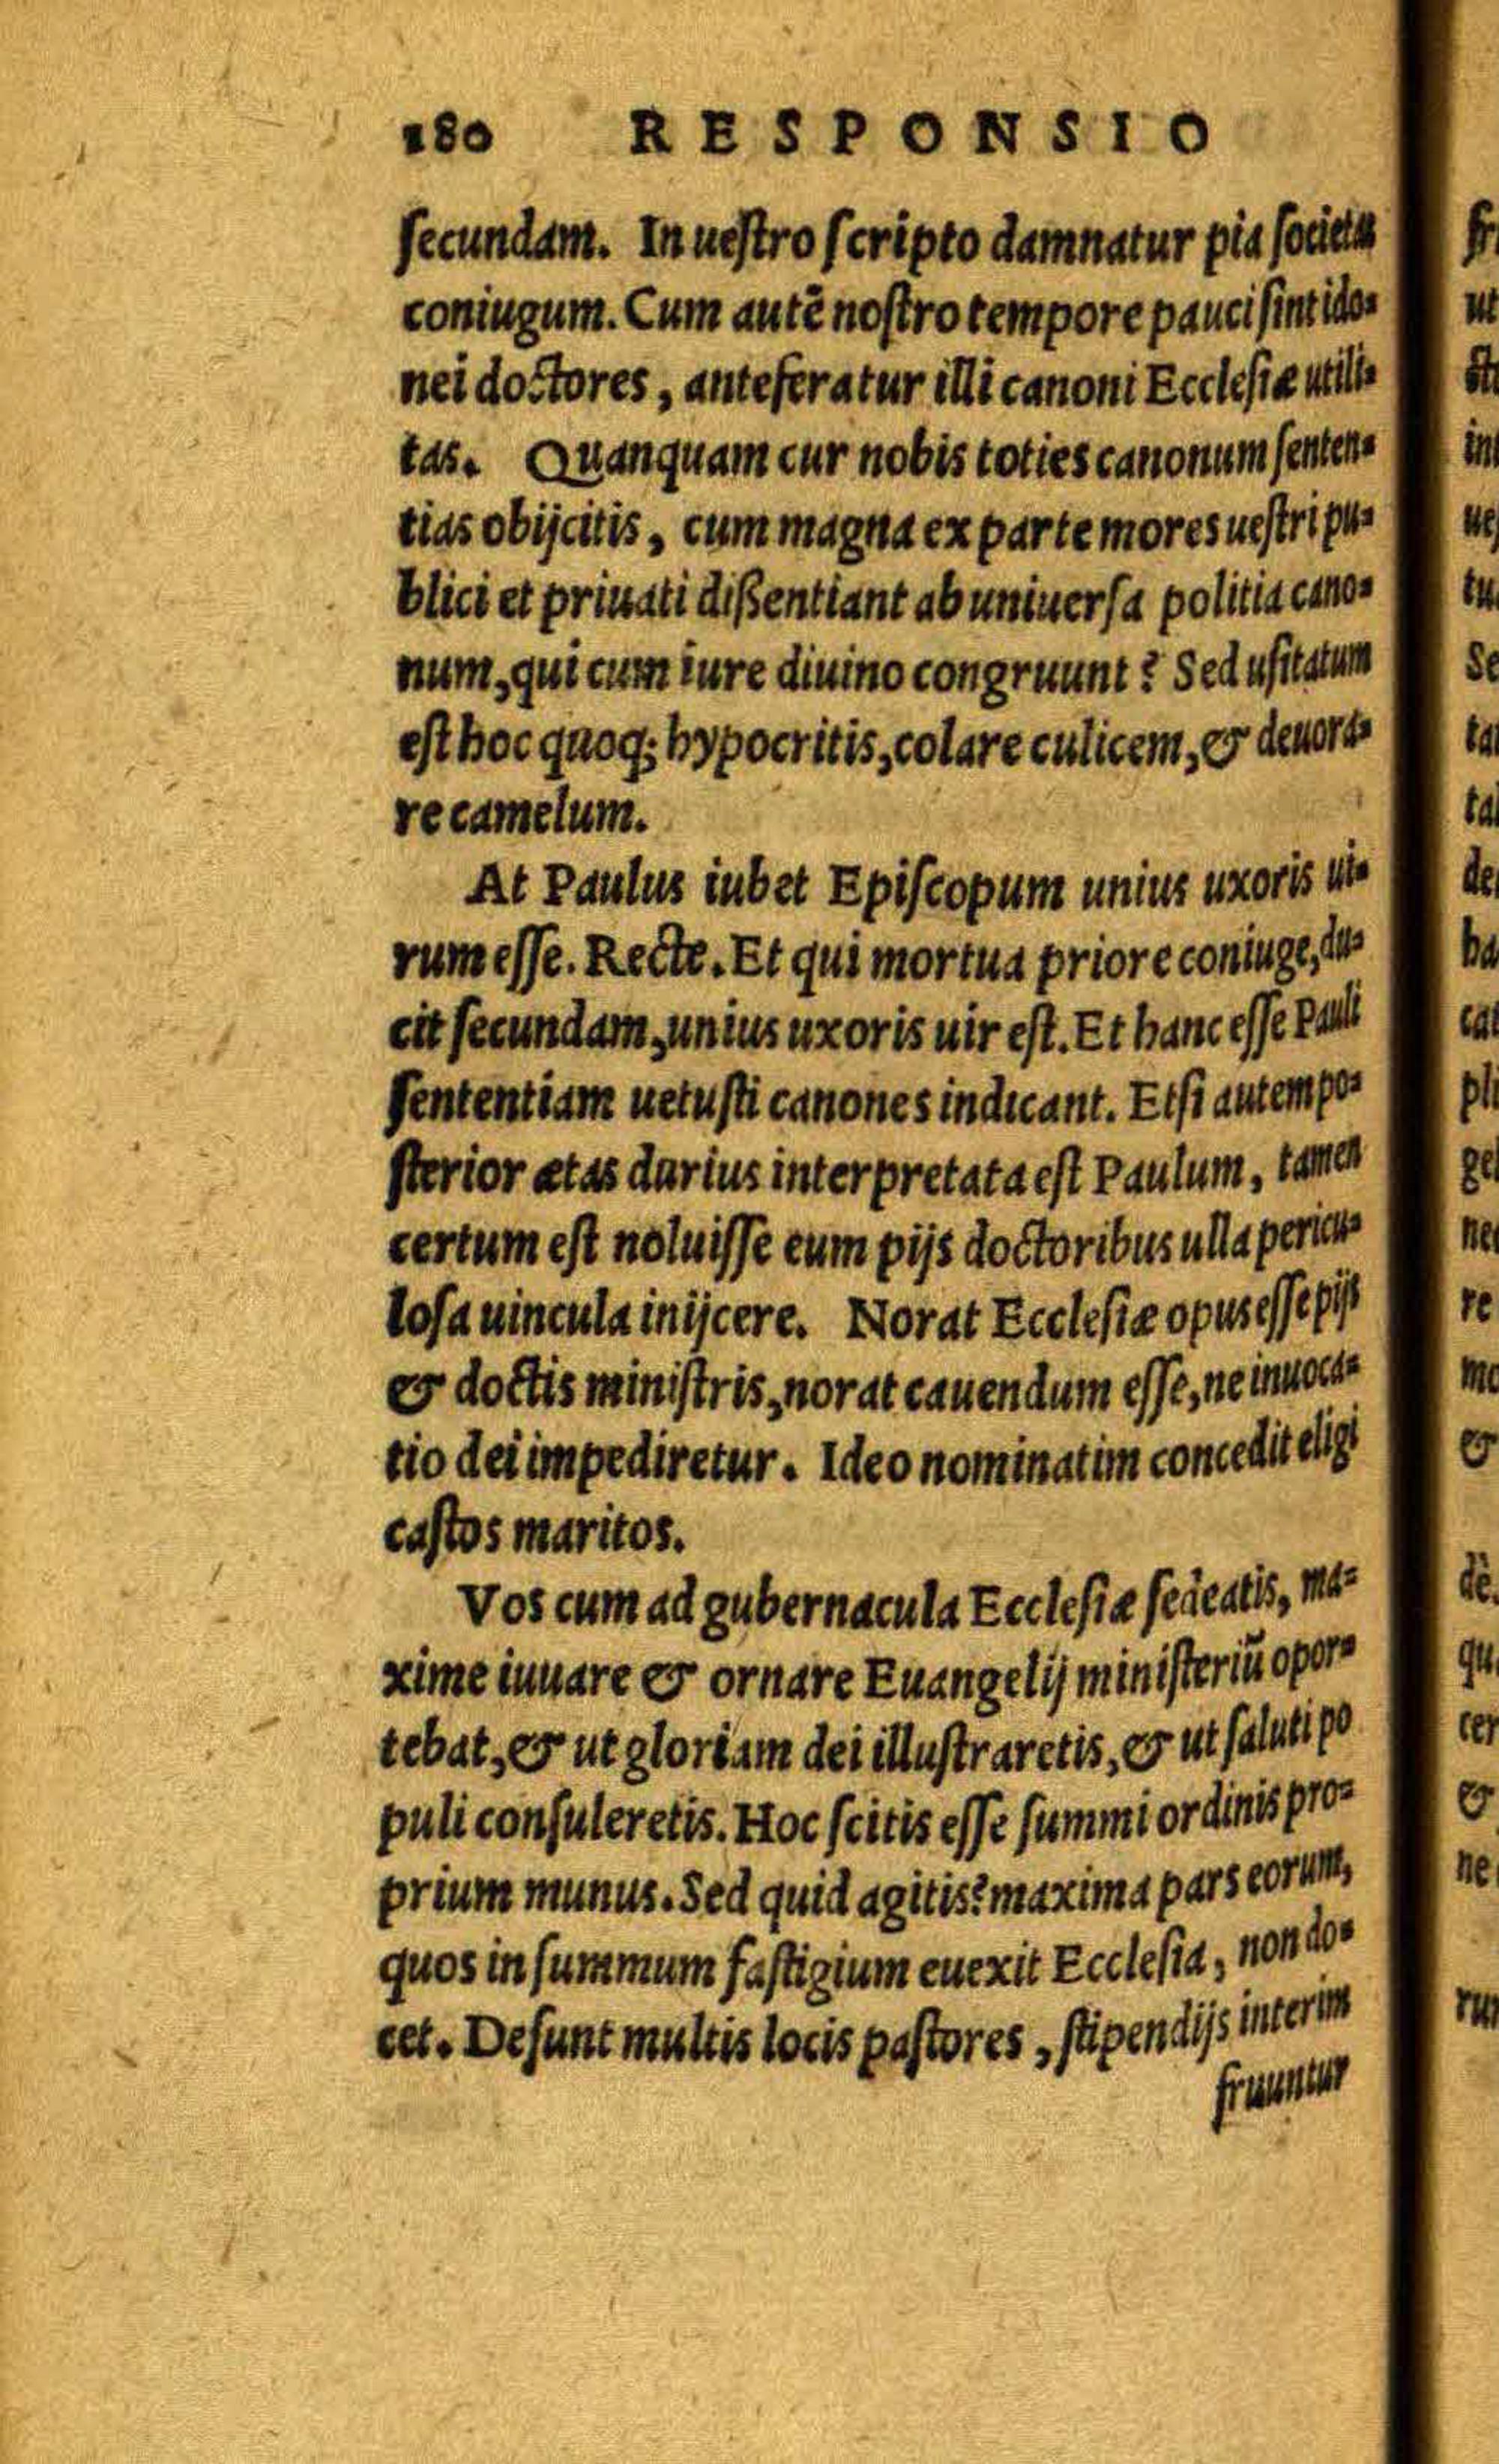 180 RESPONSIO
ſecundam. In ueſtro ſcripto damnatur pia ſocietas
coniugum. Cum autē noſtro tempore pauci ſint ido=
nei doctores, anteferatur illi canoni Eccleſiæ utili=
tas. Quanquam cur nobis toties canonum ſenten=
tias obijcitis, cum magna ex parte mores ueſtri pu=
blici et priuati dißentiant ab uniuerſa politia cano=
num, qui cum iure diuino congruunt? Sed uſitatum
eſt hoc quoq; hypocritis, colare culicem, & deuora=
re camelum.
At Paulus iubet Epiſcopum unius uxoris ui=
rum eſſe. Recte. Et qui mortua priore coniuge, du=
cit ſecundam, unius uxoris uir eſt. Et hanc eſſe Pauli
ſententiam uetuſti canones indicant. Etſi autem po=
ſterior ætas durius interpretata eſt Paulum, tamen
certum eſt noluiſſe eum pijs doctoribus ulla pericu=
loſa uincula inijcere. Norat Eccleſiæ opus eſſe pijs
& doctis miniſtris, norat cauendum eſſe, ne inuoca=
tio dei impediretur. Ideo nominatim concedit eligi
caſtos maritos.
Vos cum ad gubernacula Eccleſiæ ſedeatis, ma=
xime iuuare & ornare Euangelij miniſteriū opor=
tebat, & ut gloriam dei illuſtraretis, & ut ſaluti po
puli conſuleretis. Hoc ſcitis eſſe ſummi ordinis pro=
prium munus. Sed quid agitis? maxima pars eorum,
quos in ſummum faſtigium euexit Eccleſia, non do=
cet. Deſunt multis locis paſtores, ſtipendijs interim
fruuntur